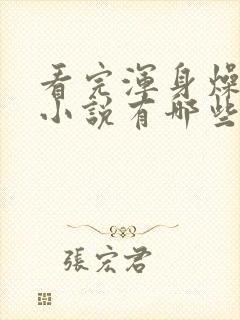 看完渾身燥
小說有哪些
張宏君